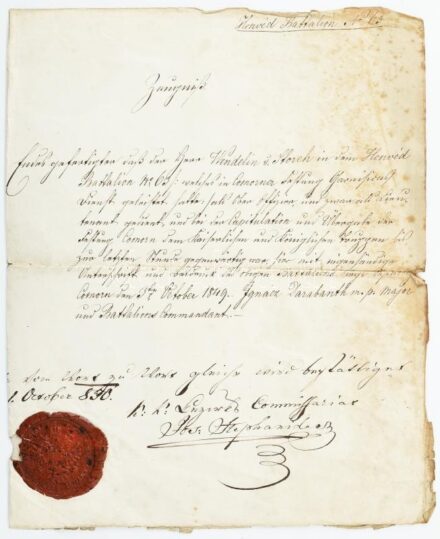 Honvéd Battalion No 63
Zeugniß
Endesgefertigter daß der Herr Wendelin v. Storch in dem Honvéd
Battalion No 63 /: welches in Comorner Festung Garnisons
Dienst geleistet hatte :/ als Ober Offizier und zwar als
tenant gedient, und bei der Capitulation und Übergabe der
Festung Comorn dem Kaiserlichen und Königlichen Truppen bis
zur letzten Stunde gegenwärtig war, bin mit eigenhändiger
Unterschrift und
Comorn den 3ten October 1849. Ignacz Darabanth m.p. Major
und Battalions Commandant.
von Wort zu Wort gleich wird bestättiget
October 850.
K. K. Bezirks Commissariat